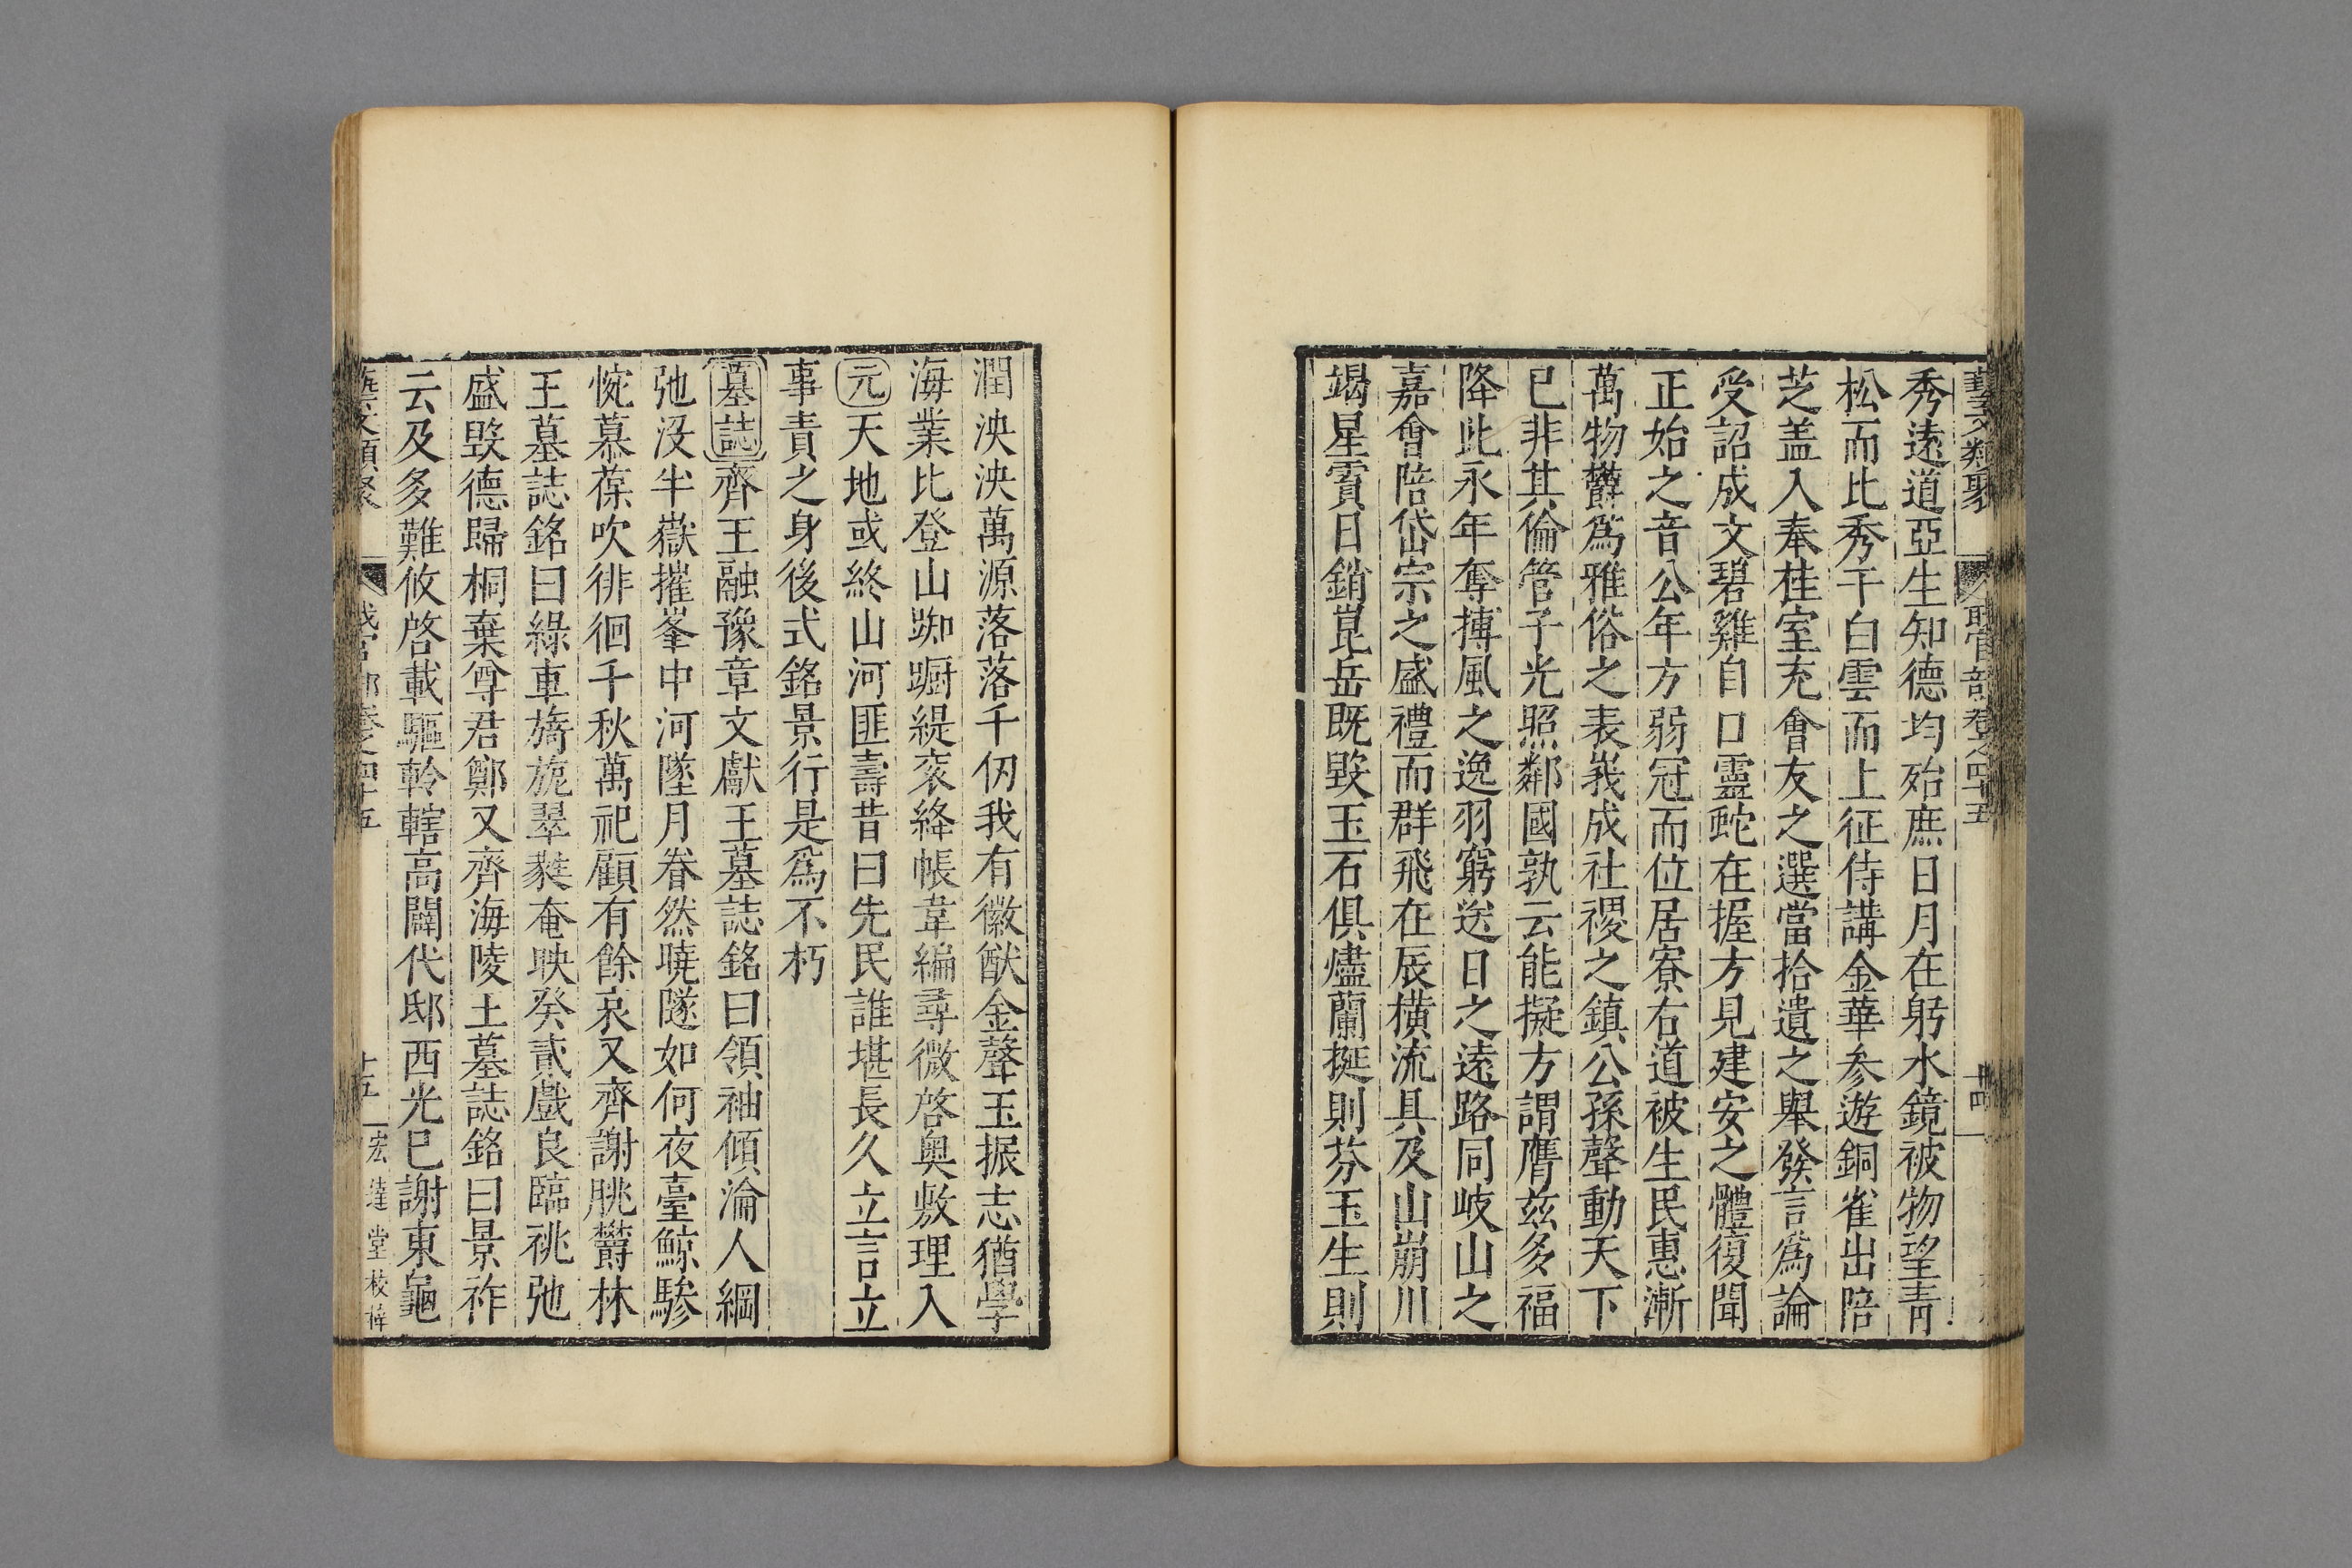 藝文類聚 職官部卷之四十五 十四
秀遠道亞生知德均殆庶日月在躬水鏡被物望青
松而比秀干白雲而上征侍講金華參遊銅雀出陪
芝盖入奉桂室充會友之選當拾遺之舉發言爲論
受詔成文碧雞自口靈蛇在握方見建安之體復聞
正始之音公年方弱冠而位居寮右道被生民惠漸
萬物欝爲雅俗之表峩成社稷之鎮公孫聲動天下
已非其倫管子光照鄰國孰云能擬方謂膺兹多福
降此永年奪摶風之逸羽窮送日之遠路同岐山之
嘉會陪岱宗之盛禮而群飛在辰橫流具及山崩川
竭星霣日銷崑岳既毀玉石俱燼蘭挻則芬玉生則
潤泱泱萬源落落千仞我有徽猷金聲玉振志猶學
海業比登山踟蹰緹袠絳帳韋編尋微啓奥敷理入
元天地或終山河匪壽昔曰先民誰堪長久立言立
事責之身後式銘景行是爲不朽
墓誌齊王融豫章文獻王墓誌銘曰領袖傾淪人綱
弛没半嶽摧峯中河墜月眷然曉隧如何夜臺鯨驂
惋慕葆吹徘徊千秋萬祀顧有餘哀又齊謝朓欝林
王墓誌銘曰綠車旖旎翠蕤奄映癸貳戲良臨祧弛
盛毀德歸桐棄尊君鄭又齊海陵王墓誌銘曰景祚
云及多難攸啓載驅軨轄高闢代邸西光巳謝東龜
藝文類聚 職官部卷之四十五 十五 宏達堂校梓